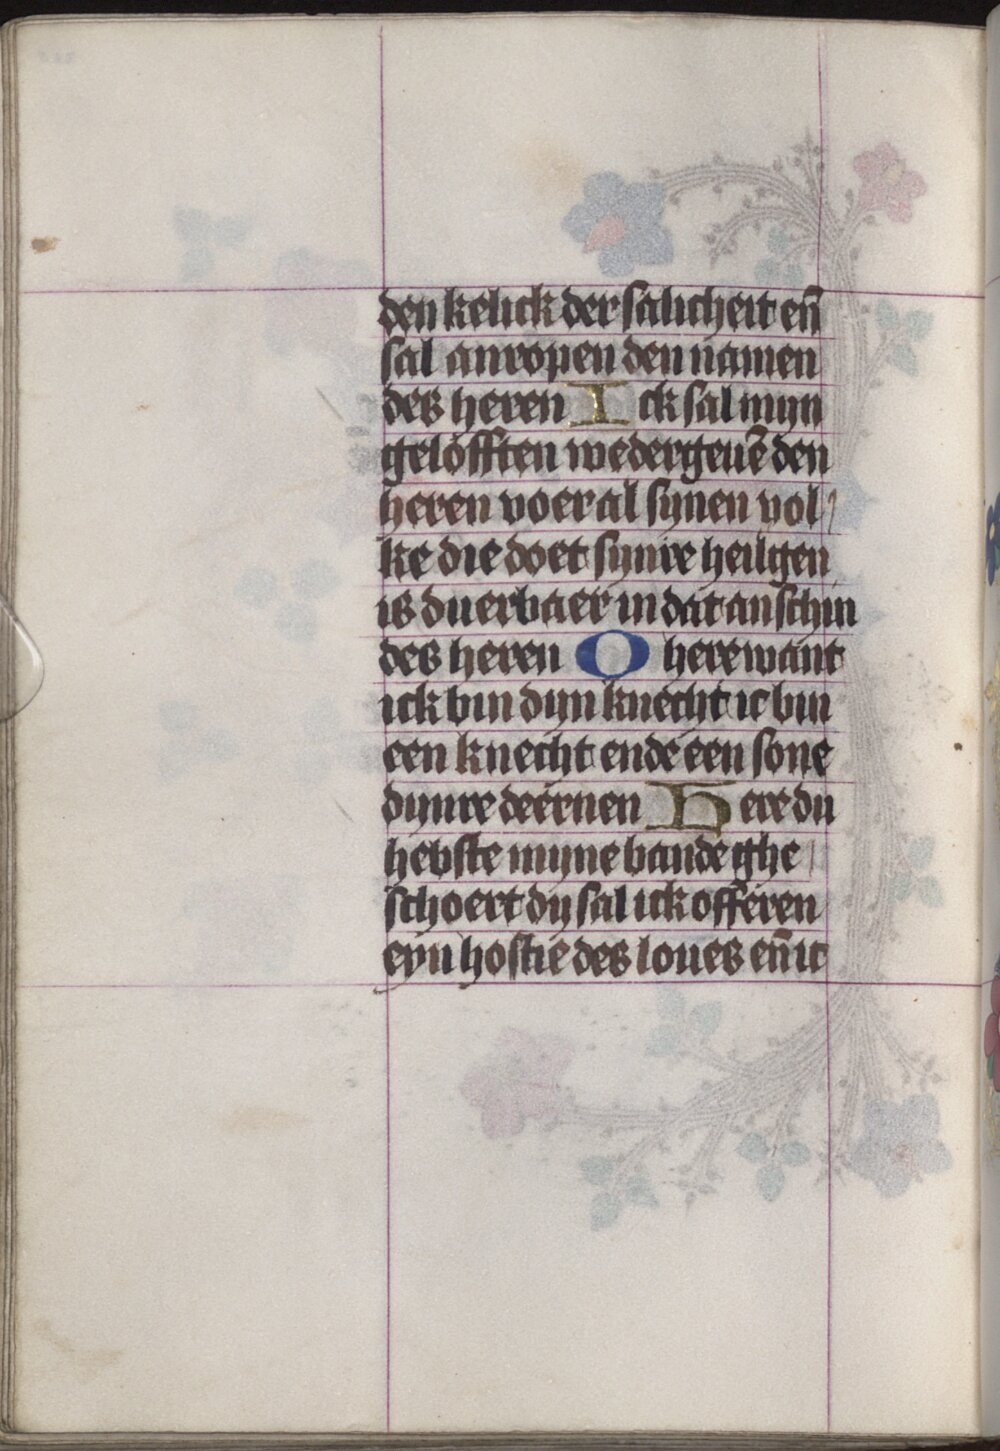 den kelick der salicheit en̄
sal anropen den namen
des heren Ick sal myn
gelofften wedergeuē den
heren voer al synen vol
ke die doet synre heiligen
is duerbaer in dat anschin
des heren O here want
ick bin dyn knecht ic bin
een knecht ende een sone
dynre deernen Here du
hebste myne bande ghe
schoert dy sal ick offeren
eyn hostie des loues en̄ ic